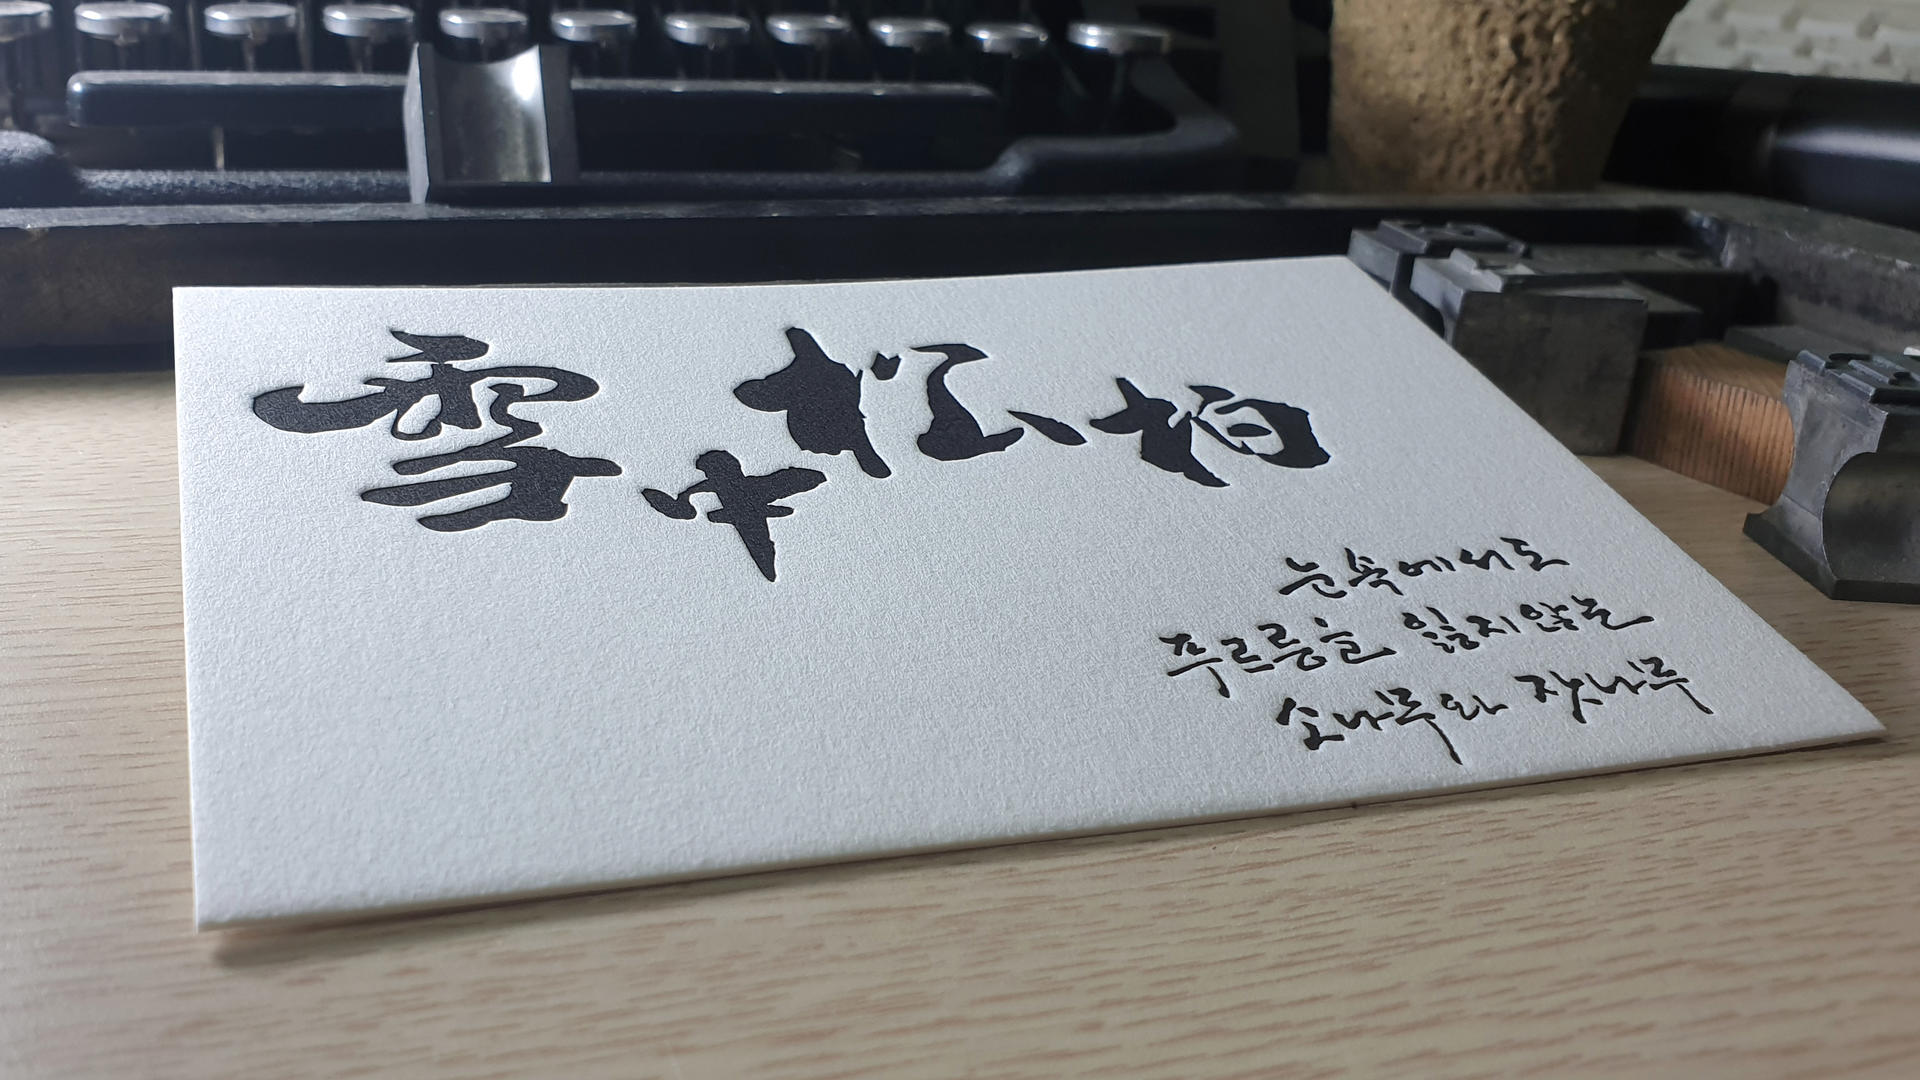 雪中松柏
눈속에서도
푸르름을 잃지않는
소나무와 잣나무